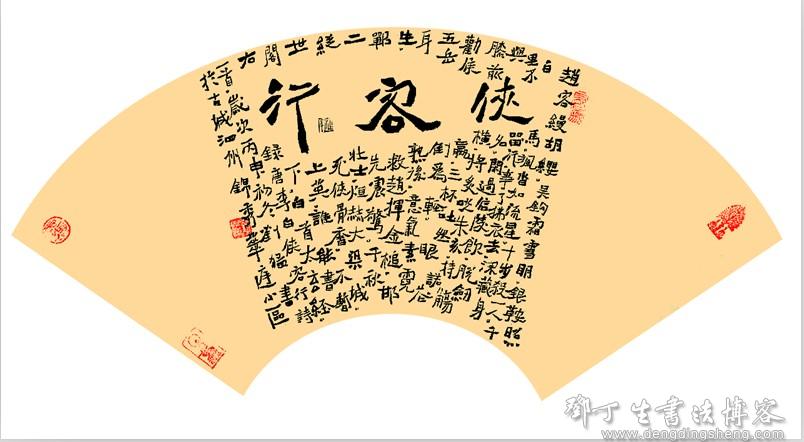 俠客行
趙客縵胡纓吳鉤霜雪明銀鞍照
白馬颯沓如流星十步殺一人千
里不留行事了拂衣去深藏身
與名閑過信陵飲脫劍
膝前橫將炙啖朱亥持觴
勸侯嬴三杯吐然諾
五岳倒為輕眼花
耳熟後意氣素霓
生救趙揮金槌邯
鄲先震驚千秋
二壯士烜赫大梁城
縱死俠骨香不慚
世上英誰能書
閣下白首太玄經
右錄唐李白俠客行詩
一首歲次丙申初冬劉猛書
於古城泗州錦秀華庭小區
鄧丁生书法博客
www.dengdingsheng.com